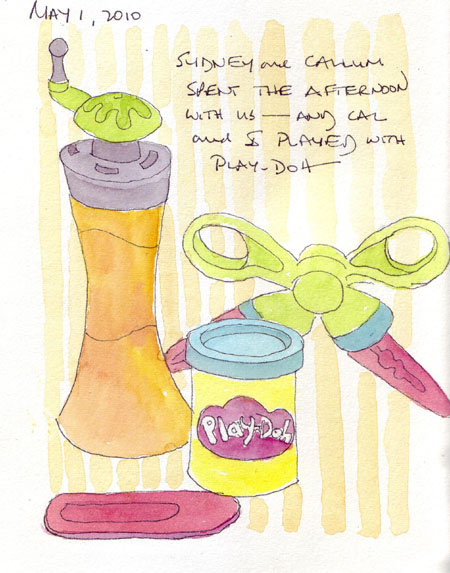 MAY 1, 2010
SYDNEY and CALLUM
SPENT THE AFTERNOON
WITH US — AND CAL
and I PLAYED WITH
PLAY-DOH
Play-Doh